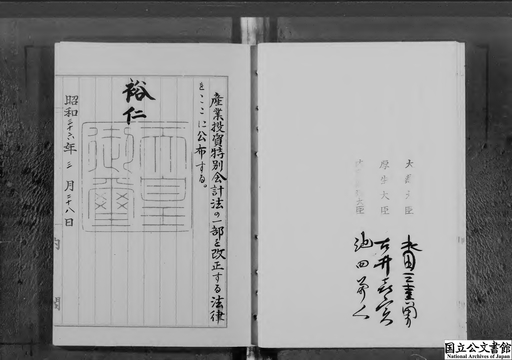 産業投資特別会計法の一部を改正する法律
をここに公布する。
裕仁
天皇
御璽
昭和三十六年三月二十八日
内閣
大蔵大臣
厚生大臣
水田三喜男
古井喜実
池田勇人
国立公文書館
National Archives of Japan